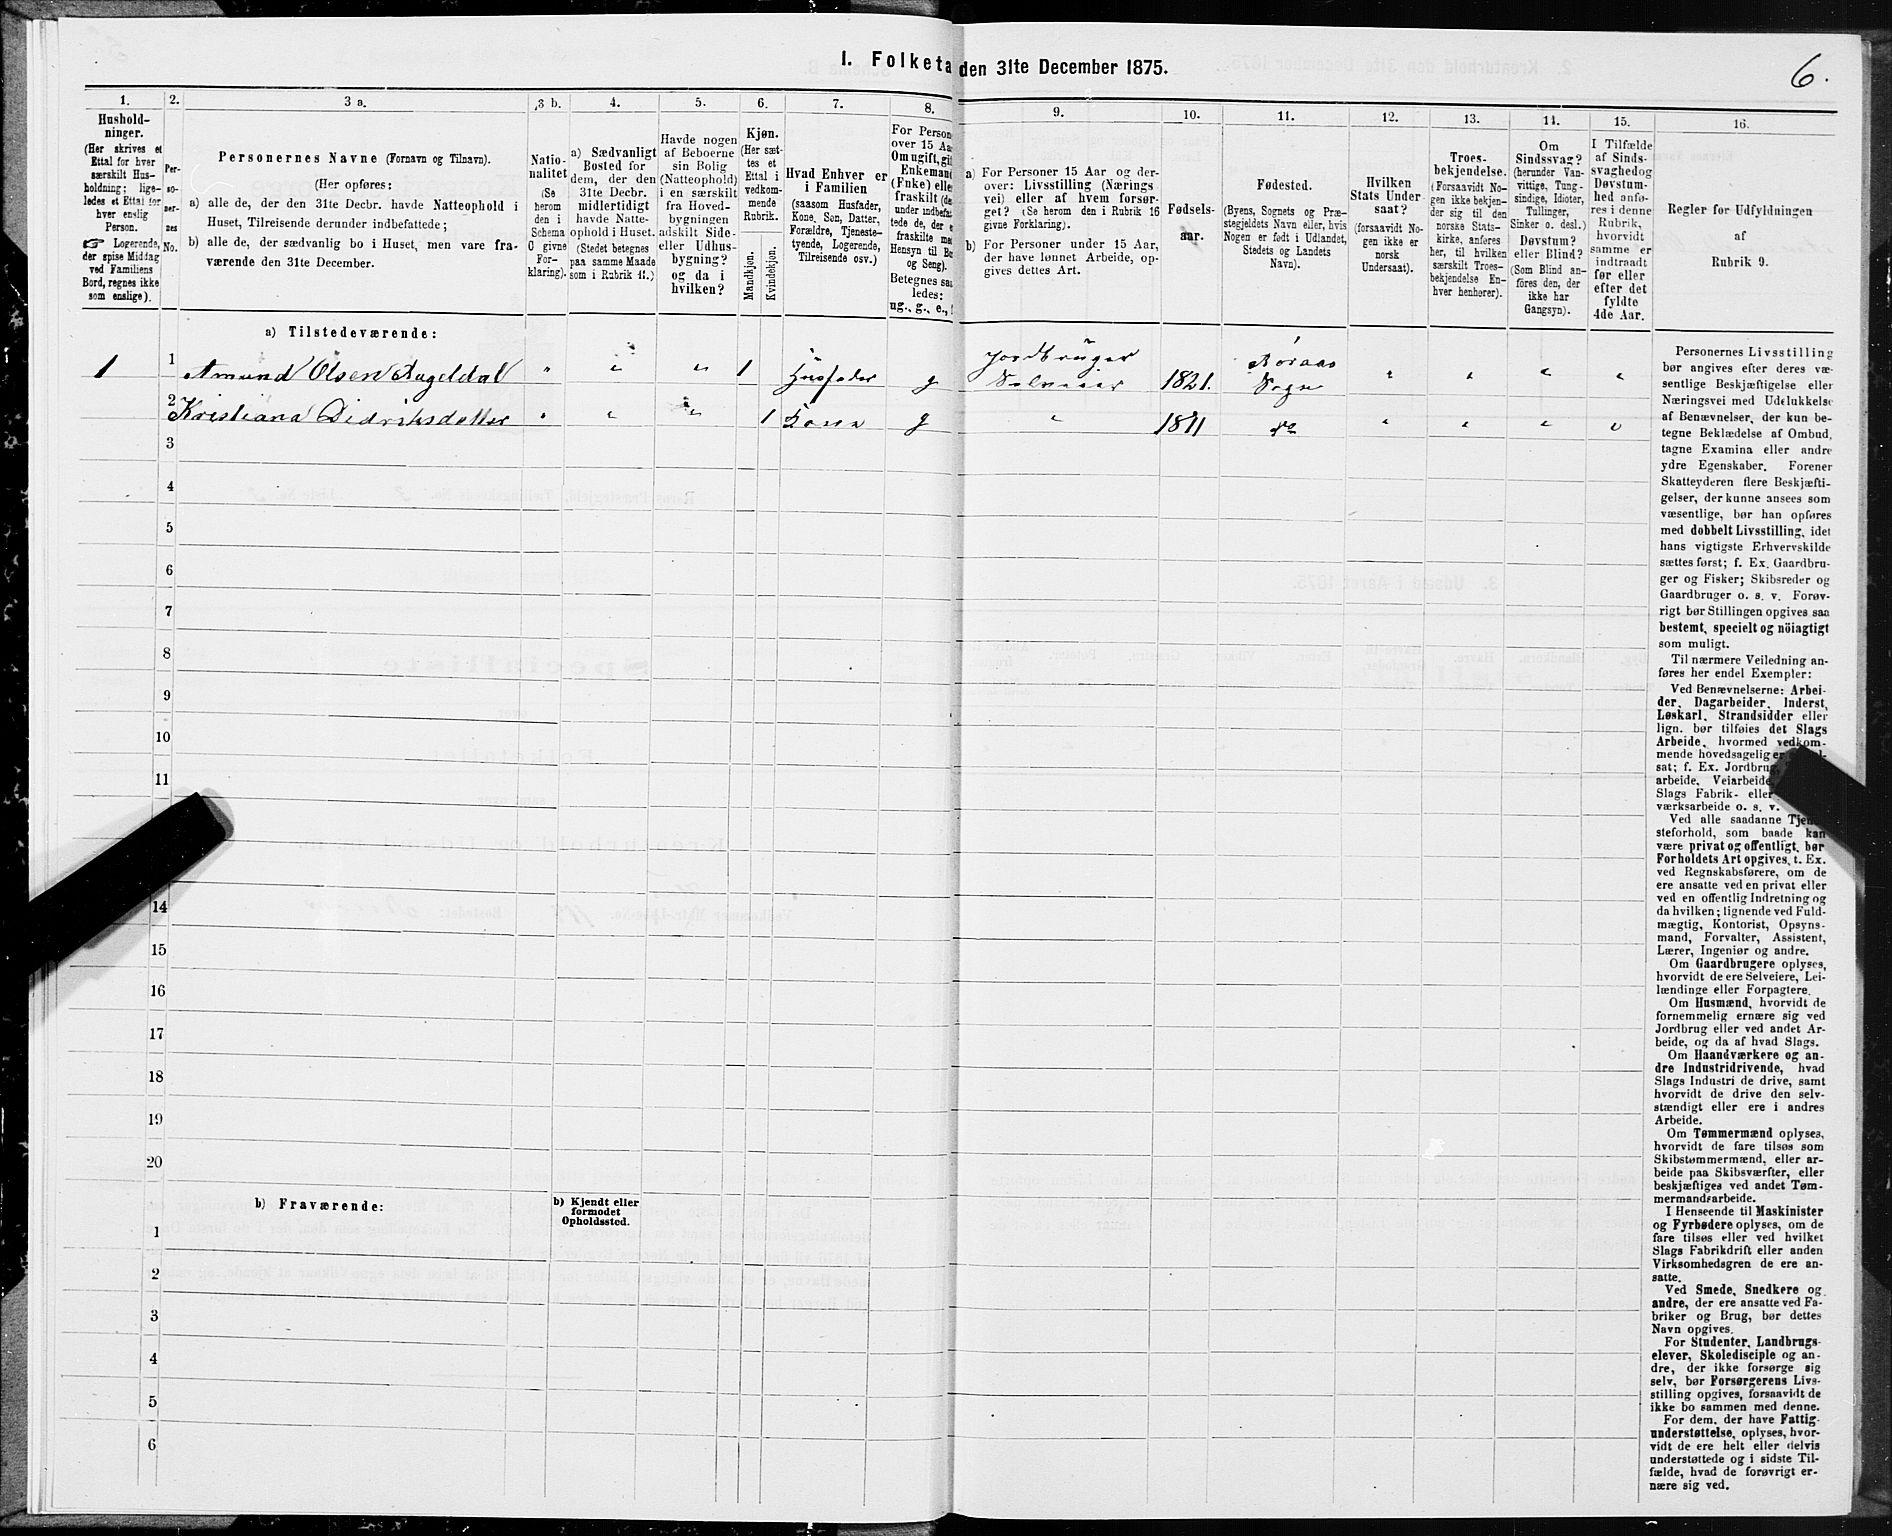 1. Folketa den 31te December 1875.
6.
1.
2.
3 a.
3 b.
4.
5.
6.
7.
8.
9.
10.
11.
12.
13.
14.
15.
16.
Hushold-
ninger.
(Her skrives et
Ettal for hver
særskilt Hus-
holdning; lige-
ledes et Ettal for
hver enslig
Person.
☞ Logerende,
der spise Middag
ved Familiens
Bord, regnes ikke
som enslige).
Per-
so-
ner-
nes
No.
Personernes Navne (Fornavn og Tilnavn).
(Her opføres:
a) alle de, der den 31te Decbr. havde Natteophold i
Huset, Tilreisende derunder indbefattede;
b) alle de, der sædvanlig bo i Huset, men vare fra-
værende den 31te December.
Natio-
nalitet
(Se
herom
den i
Schema
C givne
For-
klaring).
a) Sædvanligt
Bosted for
dem, der den
31te Decbr.
midlertidigt
havde Natte-
ophold i Huset.
(Stedet betegnes
paa samme Maade
som i Rubrik 11.)
Havde nogen
af Beboerne
sin Bolig
(Natteophold)
i en særskilt
fra Hoved-
bygningen
adskilt Side-
eller Udhus-
bygning?
og da i
hvilken?
Kjøn.
(Her sæt-
tes et
Ettal i
vedkom-
mende
Rubrik.
Mandkjøn.
Kvindekjøn.
Hvad Enhver er
i Familien
(saasom Husfader,
Kone, Søn, Datter,
Forældre, Tjeneste-
tyende, Logerende,
Tilreisende osv.)
For Person
over 15 Aa
Om ugift, gif
Enkemand
(Enke) elle
fraskilt (de
under indbefat
tede de, der e
fraskilte med
Hensyn til Bo
og Seng).
Betegnes saa
ledes:
ug., g., e.,
a) For Personer 15 Aar og der-
over: Livsstilling (Nærings
vei) eller af hvem forsør-
get? (Se herom den i Rubrik 16
givne Forklaring).
b) For Personer under 15 Aar,
der have lønnet Arbeide, op-
gives dettes Art.
Fødsels-
aar.
Fødested.
(Byens, Sognets og Præ-
stegjeldets Navn eller, hvis
Nogen er født i Udlandet,
Stedets og Landets
Navn).
Hvilken
Stats Under
saat?
(forsaavidt No-
gen ikke er
norsk
Undersaat).
Troes-
bekjendelse.
(Forsaavidt No-
gen ikke bekjen-
der sig til den
norske Stats-
kirke, anføres
her, til hvilken
særskilt Troes-
bekjendelse En-
hver henhører).
Om
Sindssvag?
(herunder Van-
vittige, Tung-
sindige, Idioter,
Tullinger,
Sinker o. desl.)
Døvstum?
eller Blind?
(Som Blind an-
føres den, der
ikke har
Gangsyn).
I Tilfælde
af Sinds-
svaghed og
Døvstum-
hed anfø-
res i denne
Rubrik,
hvorvidt
samme er
indtraadt
før eller
efter det
fyldte
4de Aar.
Regler for Udfyldningen
af
Rubrik 9.
a) Tilstedeværende:
1 1 Amund Olsen Rugeldal " " " 1 Husfader g Jordbruger Selveier 1821. Røraas Sogn " " " "
2 Kristiana Didriksdatter " " " 1 Kone g " 1811 do " " " "
3
4
5
6
7
8
9
10
11
14
15
16
17
18
19
20
b) Fraværende:
b) Kjendt eller
formodet
Opholdssted.
1
2
3
4
5
6
Personernes Livsstilling
bør angives efter deres væ-
sentlige Beskjæftigelse eller
Næringsvei med Udelukkelse
af Benævnelser, der kun be-
tegne Beklædelse af Ombud,
tagne Examina eller andre
ydre Egenskaber. Forener
Skatteyderen flere Beskjæfti-
gelser, der kunne ansees som
væsentlige, bør han opføres
med dobbelt Livsstilling, idet
hans vigtigste Erhvervskilde
sættes først; f. Ex. Gaardbru-
ger og Fisker; Skibsreder og
Gaardbruger o. s. v. Forøv-
rigt bør Stillingen opgives saa
bestemt, specielt og nøiagtigt
som muligt.
Til nærmere Veiledning an-
føres her endel Exempler:
Ved Benævnelserne: Arbei-
der, Dagarbeider, Inderst,
Løskarl, Strandsidder eller
lign. bør tilføies det Slags
Arbeide, hvormed vedkom-
mende hovedsagelig er
sat; f. Ex. Jordbrug
arbeide, Veiarbeide,
Slags Fabrik- eller
værksarbeide o. s. v.
Ved alle saadanne Tjen
steforhold, som baade kan
være privat og offentligt, bør
Forholdets Art opgives, t. Ex.
ved Regnskabsførere, om de
ere ansatte ved en privat eller
ved en offentlig Indretning og
da hvilken; lignende ved Fuld-
mægtig, Kontorist, Opsyns-
mand, Forvalter, Assistent,
Lærer, Ingeniør og andre.
Om Gaardbrugere oplyses,
hvorvidt de ere Selveiere, Lei-
lændinge eller Forpagtere.
Om Husmænd, hvorvidt de
fornemmelig ernære sig ved
Jordbrug eller ved andet Ar-
beide, og da af hvad Slags.
Om Haandværkere og an-
dre Industridrivende, hvad
Slags Industri de drive, samt
hvorvidt de drive den selv-
stændigt eller ere i andres
Arbeide.
Om Tømmermænd oplyses,
hvorvidt de fare tilsøs som
Skibstømmermænd, eller ar-
beide paa Skibsværfter, eller
beskjæftiges ved andet Tøm-
mermandsarbeide.
I Henseende til Maskinister
og Fyrbødere oplyses, om de
fare tilsøs eller ved hvilket
Slags Fabrikdrift eller anden
Virksomhedsgren de ere an-
satte.
Ved Smede, Snedkere og
andre, der ere ansatte ved Fa-
briker og Brug, bør dettes
Navn opgives.
For Studenter, Landbrugs-
elever, Skoledisciple og an-
dre, der ikke forsørge sig
selv, bør Forsørgerens Livs-
stilling opgives, forsaavidt de
ikke bo sammen med denne.
For dem, der have Fattig-
understøttelse, oplyses, hvor-
vidt de ere helt eller delvis
understøttede og i sidste Til-
fælde, hvad de forøvrigt er-
nære sig ved.